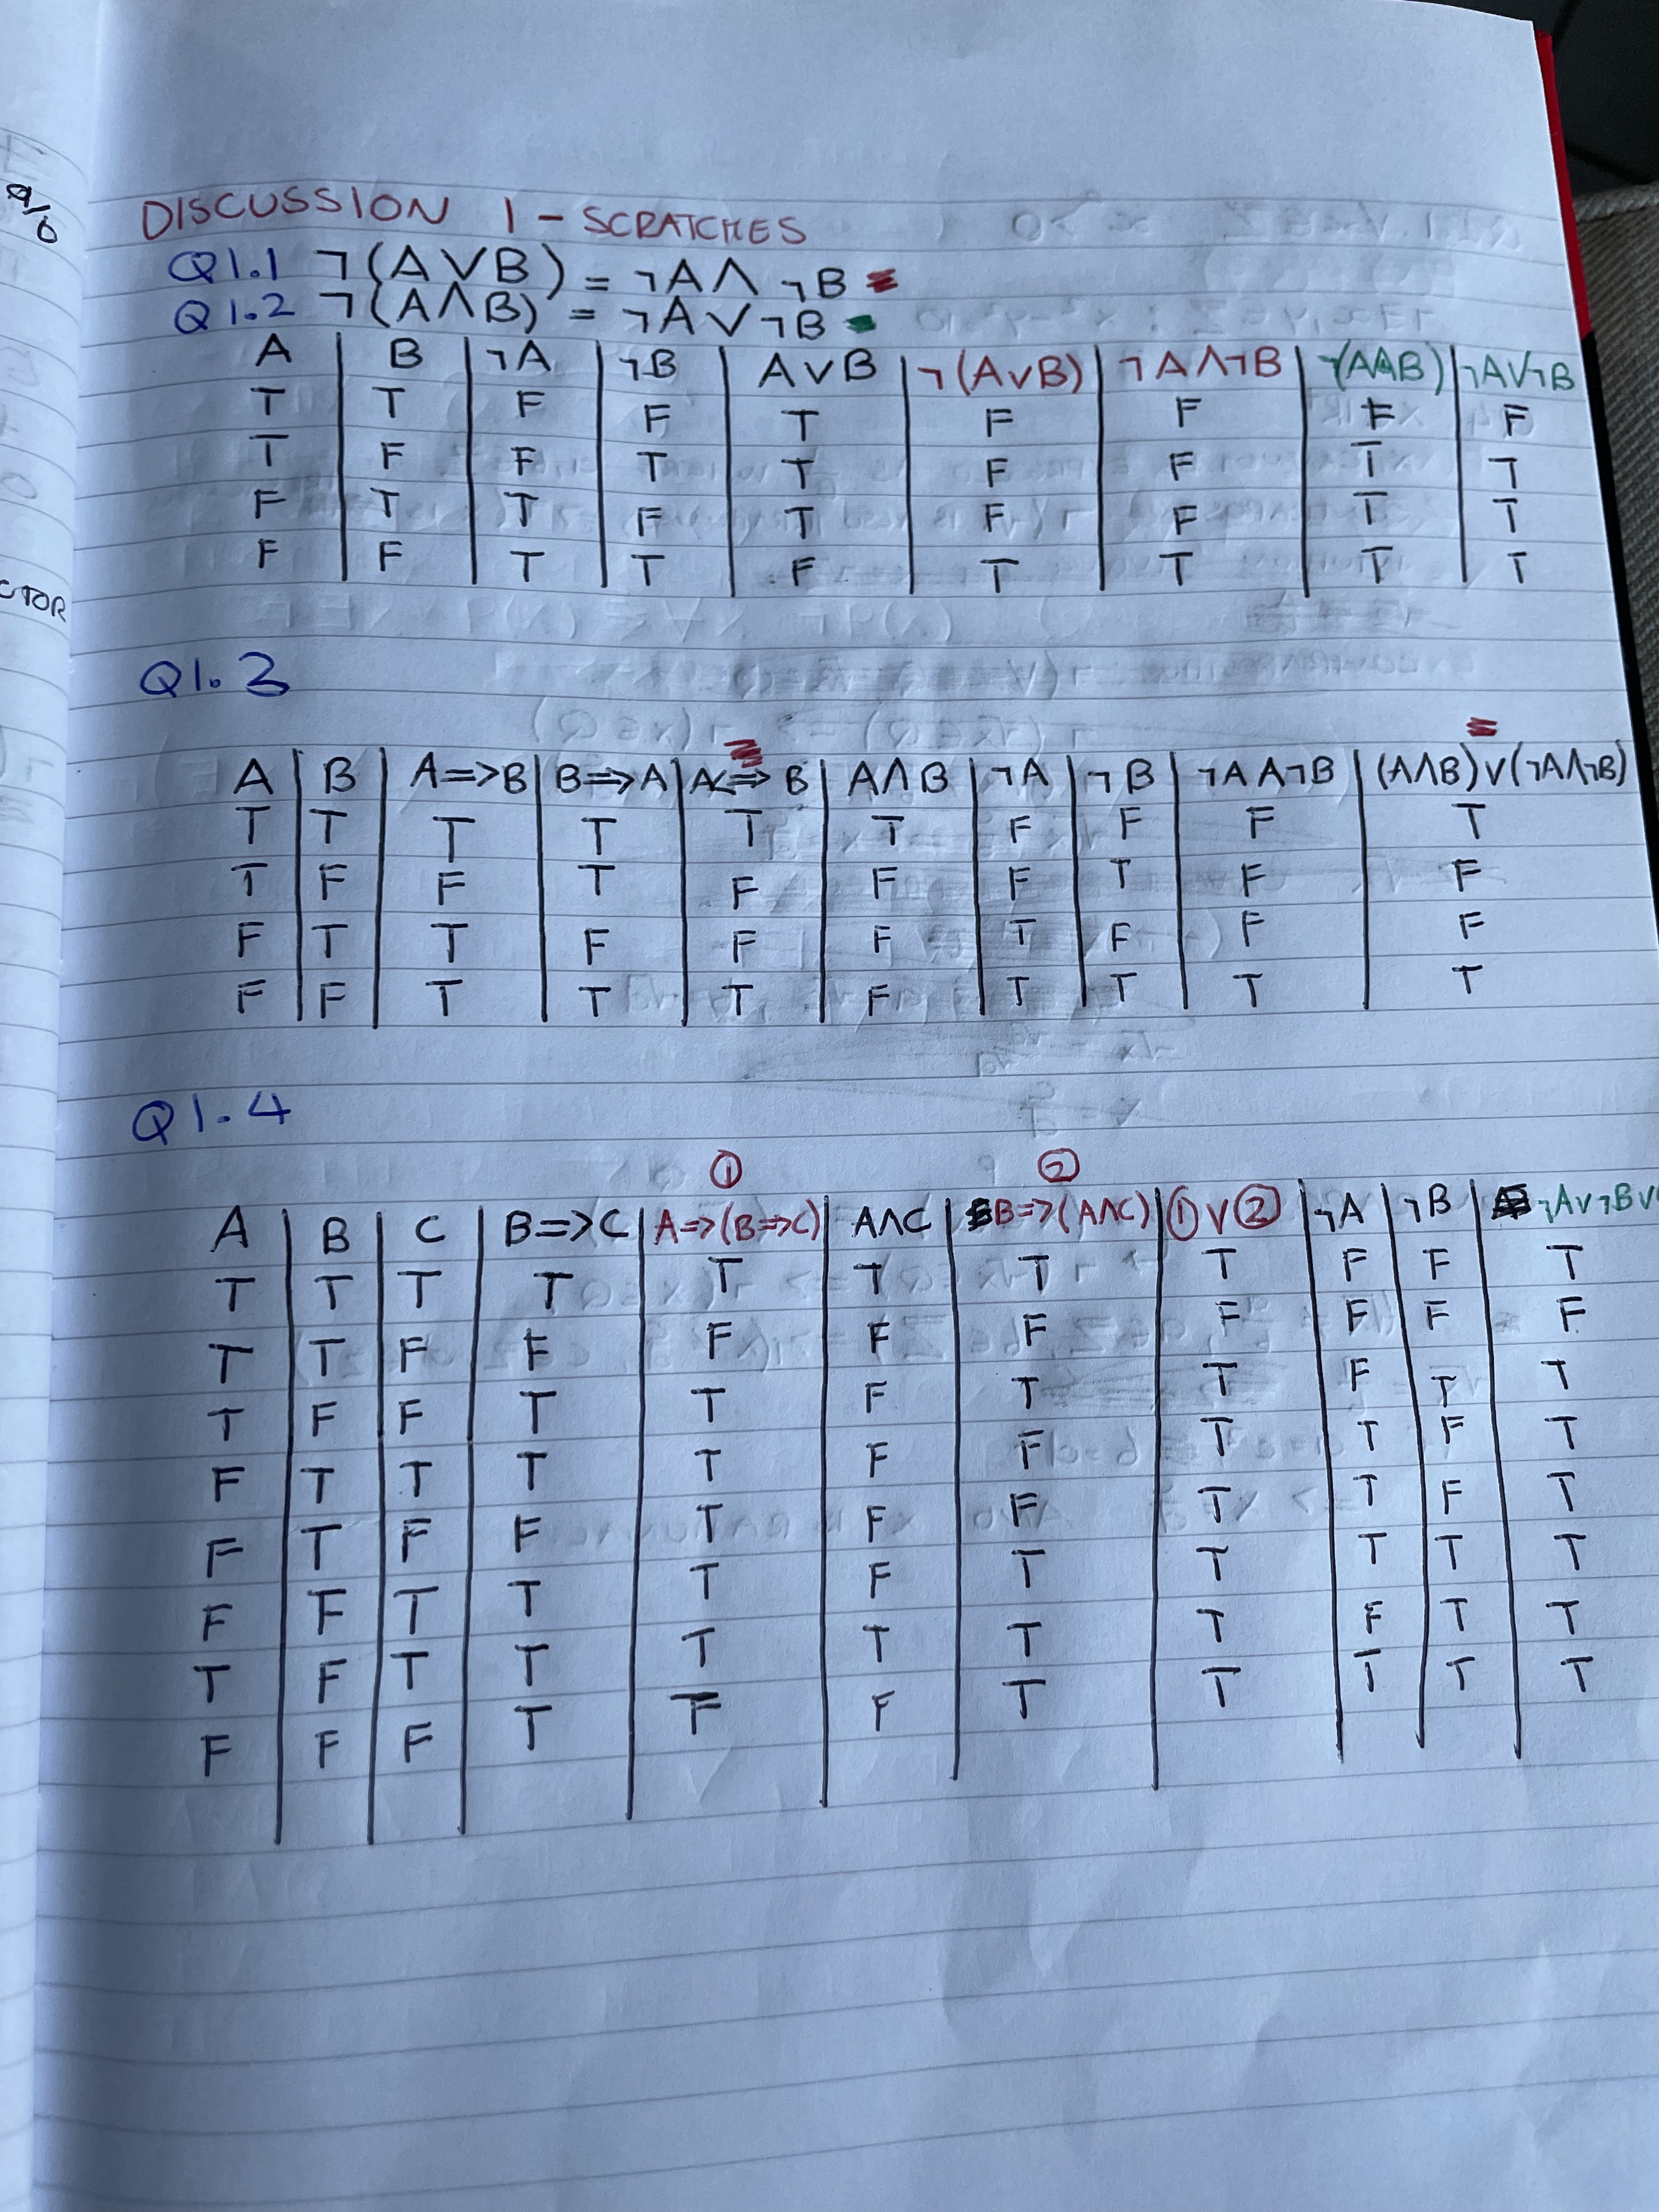 9/6
CTOR
DISCUSSION 1 - SCRATCHES
Q1.1 ¬(A∨B) = ¬A∧ ¬B
Q1.2 ¬(A∧B) = ¬A∨¬B
A | B | ¬A | ¬B | A∨B | ¬(A∨B) | ¬A∧¬B | ¬(A∧B) | ¬A∨¬B
T | T | F | F | T | F | F | F | F
T | F | F | T | T | F | F | T | T
F | T | T | F | T | F | F | T | T
F | F | T | T | F | T | T | T | T
Q1.3
A | B | A=>B | B=>A | A<=>B | A∧B | ¬A | ¬B | ¬A∧¬B | (A∧B)∨(¬A∧¬B)
T | T | T | T | T | T | F | F | F | T
T | F | F | T | F | F | F | T | F | F
F | T | T | F | F | F | T | F | F | F
F | F | T | T | T | F | T | T | T | T
Q1.4
① ②
A | B | C | B=>C | A=>(B=>C) | A∧C | B=>(A∧C) | ①∨② | ¬A | ¬B | ¬A∨¬B∨
T | T | T | T | T | T | T | T | F | F | T
T | T | F | F | F | F | F | F | F | F | F
T | F | F | T | T | F | T | T | F | T | T
F | T | T | T | T | F | F | T | T | F | T
F | T | F | F | T | F | F | T | T | F | T
F | F | T | T | T | F | T | T | T | T | T
T | F | T | T | T | T | T | T | F | T | T
F | F | F | T | | F | T | T | T | T | T